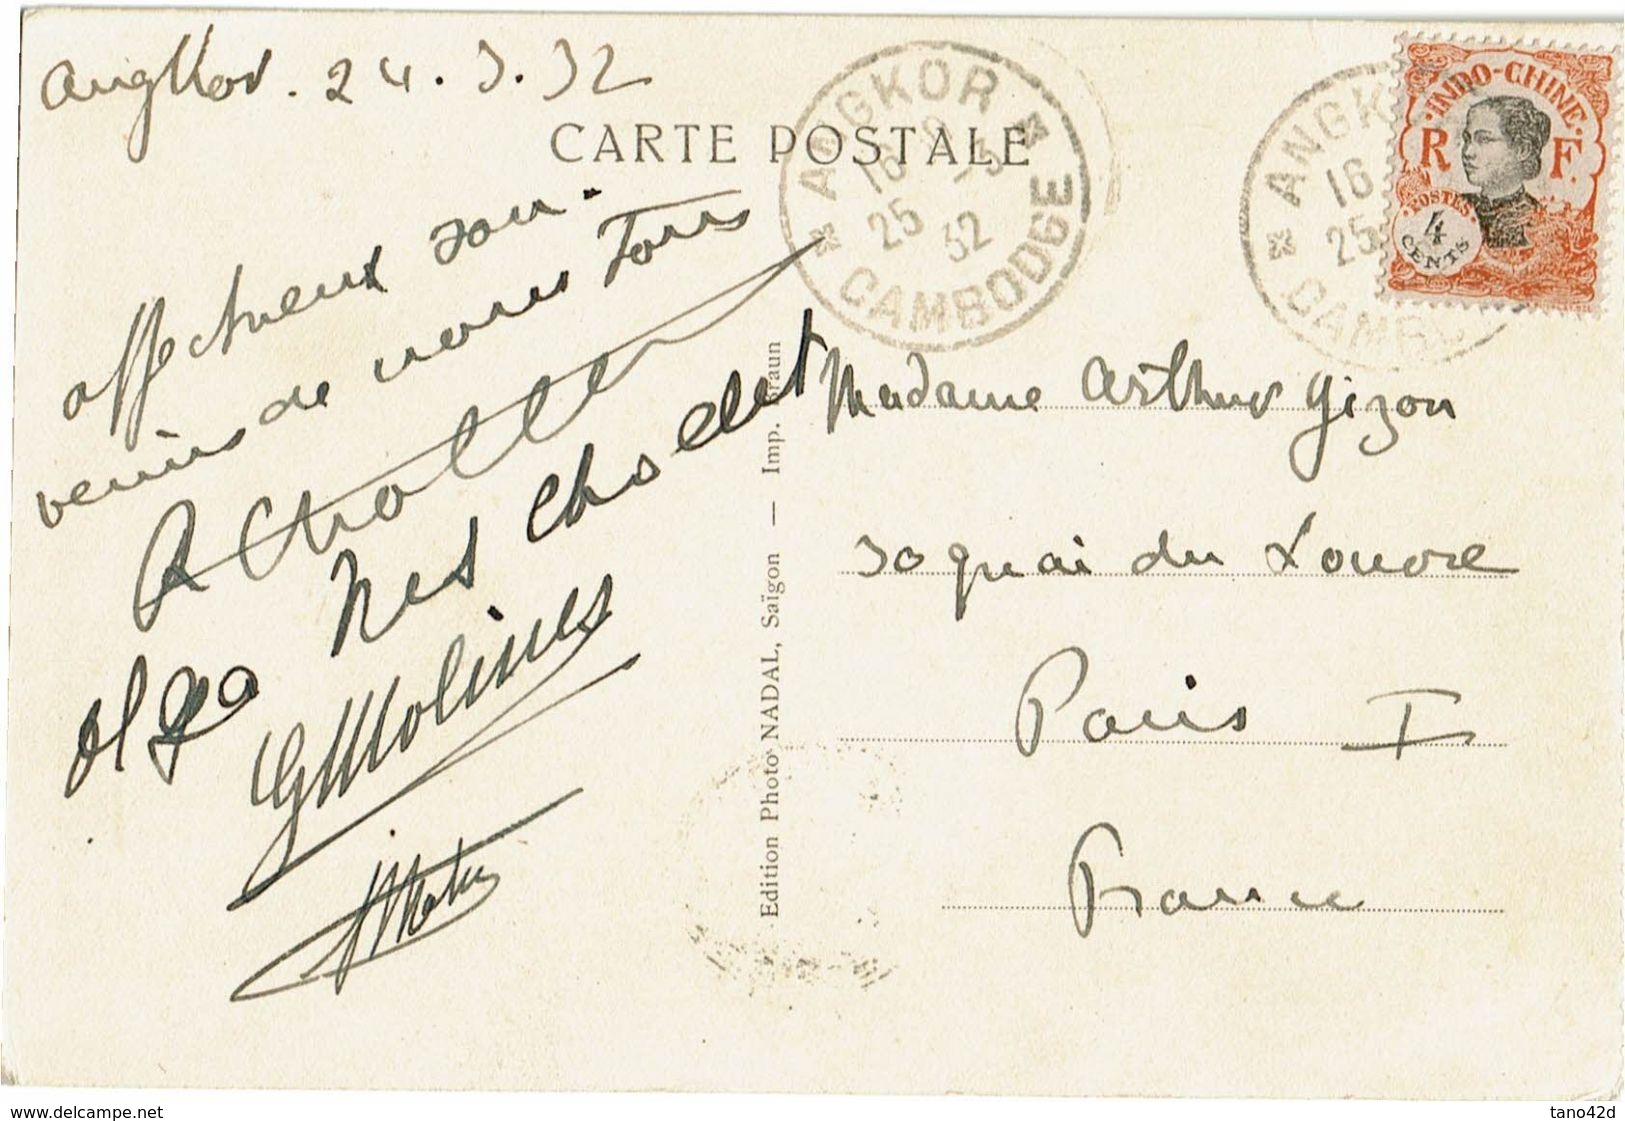 Angkor. 24.3.32
CARTE POSTALE
ANGKOR
16
25 -3
32
CAMBODGE
ANGK
16
25
CAMB
INDO-CHINE
R F.
POSTES
4
CENTS
affectueux sou-
venirs de nous tous
Olga
GMolines
Edition Photo NADAL, Saïgon — Imp. Braun
Madame Arthur Gizon
30 quai du Louvre
Paris I
France
www.delcampe.net
tano42d